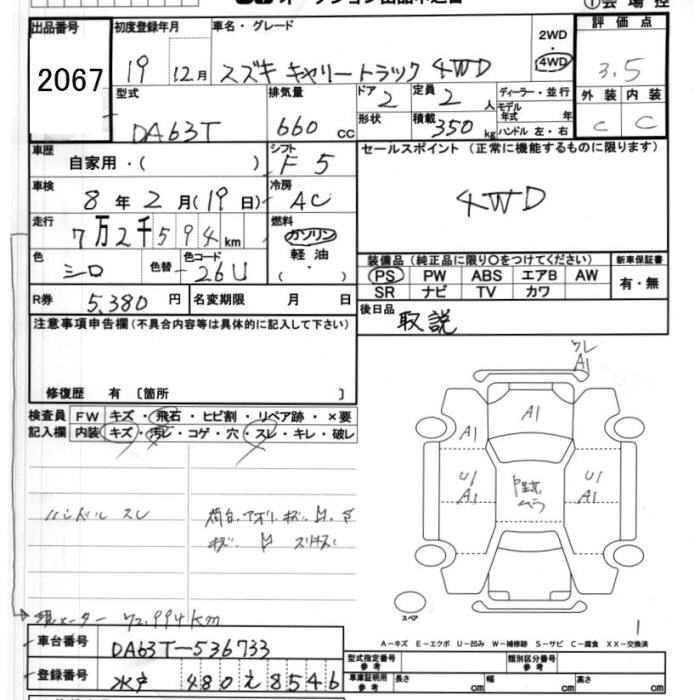 出品番号 初度登録年月 車名・グレード ①会場控
2067 19 12月 スズキ キャリートラック 4WD 2WD 4WD 評価点 3.5
型式 DA63T 排気量 660 cc ドア 2 定員 2 人 ディーラー・並行
形状 積載 350 kg モデル年式 年 ハンドル 左・右
外装 内装
C C
車歴 自家用・( ) シフト F5 セールスポイント (正常に機能するものに限ります)
車検 8年 2月 (19日) 冷房 AC 4WD
走行 7万2千594km 燃料 ガソリン・軽油・( )
色 シロ 色替 色コード 26U
装備品 (純正品に限り○をつけてください) 新車保証書
PS PW ABS エアB AW 有・無
SR ナビ TV カワ
R券 5,380円 名変期限 月 日
後日品 取説
注意事項申告欄(不具合内容等は具体的に記入して下さい)
修復歴 有 〔箇所 〕
検査員 FW キズ・飛石・ヒビ割・リペア跡・×要
記入欄 内装 キズ・汚レ・コゲ・穴・スレ・キレ・破レ
ハンドル スレ
A1
A1
A1
U1 A1
U1 A1
スペア
現メーター 72,994km
車台番号 DA63T-536733
登録番号 水戸 480 え 8546
1
A-キズ E-エクボ U-凹み W-補修跡 S-サビ C-腐食 XX-交換済
型式指定番号 参考 類別区分番号 参考
車庫証明用 参考 長さ cm 幅 cm 高さ cm